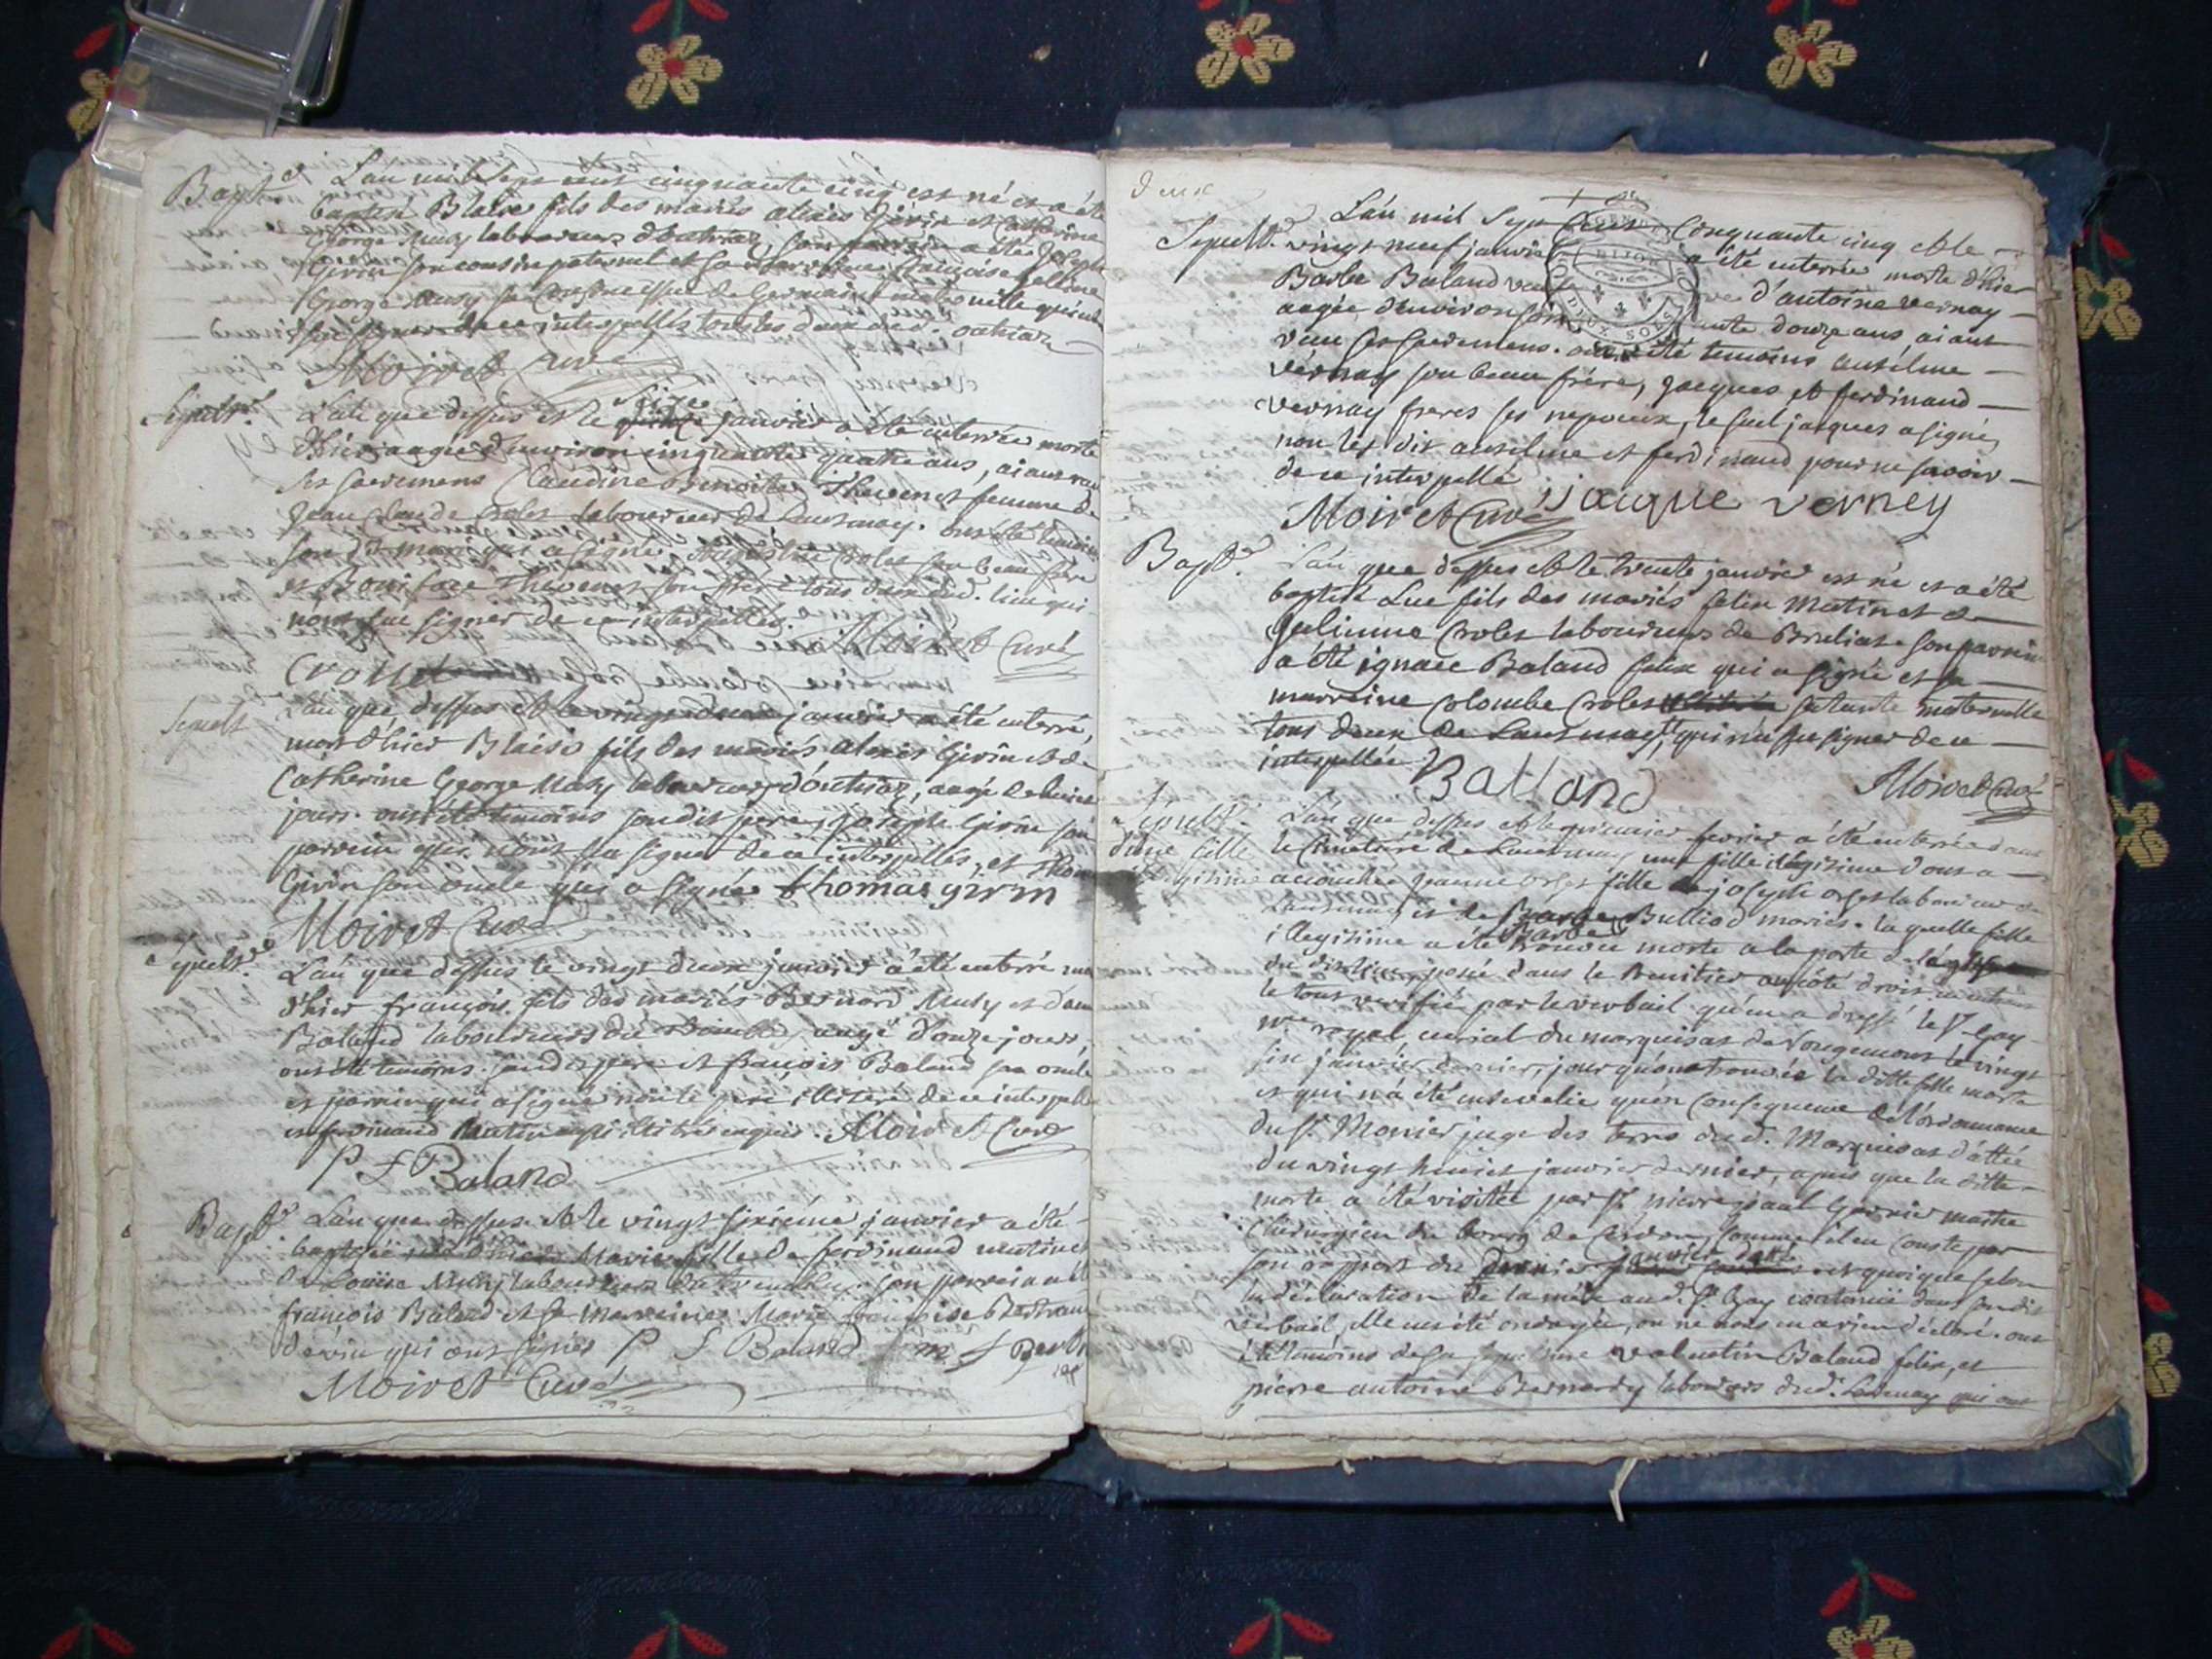 Bapt.
L'an mil sept cent cinquante cinq est né et a été
baptisé Blaise fils des mariés alexis Girin et Catherine
George Musy laboureurs d'outriaz, son parrein a été Joseph
Girin son cousin paternel et sa marreine françoise felline
George Musy sa
sçu signer de ce interpellés tous les deux dud. outriaz
Moiret Curé
Sepult.
L'an que dessus et le seize janvier a été enterrée morte
d'hier aagée d'environ cinquante quatre ans, aiant reçu
ses sacremens Claudine Benoite Thevenet femme de
Jean Claude Crolet laboureur de Lantenay. ont été témoins
son dit mari qui a signé, Crolet son beau frère
et Boniface Thevenet son frère tous deux dud. lieu qui
n'ont sçu signer de ce interpellés. Moiret Curé
Crollet
Sepult
L'an que dessus et le vingt deux janvier a été enterré,
mort d'hier Blaise fils des mariés alexis Girin et de
Catherine George Musy laboureurs d'outriaz, aagé de huit
jours. ont été témoins son dit pere, joseph Girin son
parrein qui n'ont sçu signer de ce interpellés, et Thomas
Girin son oncle qui a signé thomas girin
Moiret Curé
Sepult.
L'an que dessus le vingt deux janvier a été enterré mort
d'hier françois fils des mariés Bernard Musy et d'anne
Baland laboureurs du aagé d'onze jours,
ont été témoins son dit pere et françois Baland son oncle
et parrein qui a signé non le père illiteré de ce interpellé
et ferdinand Mutinet illitéré enquis. Moiret Curé
P f Baland
Bapt.
L'an que dessus et le vingt sixième janvier a été
baptisée née d'hier Marie fille de ferdinand mutinet
et Louise Musy laboureurs son parrein a été
françois Baland et sa marreine Marie françoise Bertrand
qui ont signés P f Baland m f Bert
Moiret Curé
deux
Sepult.
L'an mil sept Cent Cinquante cinq et le
vingt neuf janvier a été enterrée morte d'hier
Barbe Baland veuve d'antoine vernay
aagée d'environ soixante douze ans, aiant
reçu ses sacremens. ont été temoins anselme
vernay son beau frère, Jacques et ferdinand
vernay freres ses nepveux, le seul jacques a signé,
non les dit anselme et ferdinand pour ne savoir
de ce interpellé
Moiret Curé jacque verney
Bapt.
L'an que dessus et le trente janvier est né et a été
baptisé Luc fils des mariés felix Mutinet et
Julienne Crolet laboureurs de Brenliat. son parrein
a été ignace Baland felix qui a signé et sa
marreine Colombe Crolet sa tante maternelle
tous deux de Lantenay, qui n'a sçu signer de ce
interpellée
Balland Moiret Curé
Sepult.
d'une fille
illegitime
L'an que dessus et le premier fevrier a été enterrée dans
le Cimetiere de Lantenay une fille illégitime dont a
accouchée Jeanne orset fille de joseph orset laboureur de
Lantenay et de Barbe Bulliod mariés. laquelle fille
illegitime a été trouvée morte a la porte de l'église
du dit lieu, posée dans le Benitier au côté droit en entrant
le tout verifié par le verbail qu'en a dressé le Sr Gay
royal, curial du marquisat de Rougemont le vingt
six janvier dernier, jour qu'on a trouvée la ditte fille morte
et qui n'a été ensevelie qu'en consequence de l'ordonnance
du Sr. Monier juge des terres dud. Marquisat d'attée
du vingt huiet janvier dernier, apres que la ditte
morte a été visitée par Sr pierre paul Garnier maitre
Chirurgien du bourg de Cerdon, comme il en conste par
son rapport du janvier dernier et quoique selon
la déclaration de la mère aud. Sr Gay contenüe dans son dit
verbail, elle eut été ondoyée, on ne nous en a rien déclaré. ont
été témoins de sa sepulture valentin Baland felix, et
pierre antoine Bernardy laboureurs dud. Lantenay qui ont